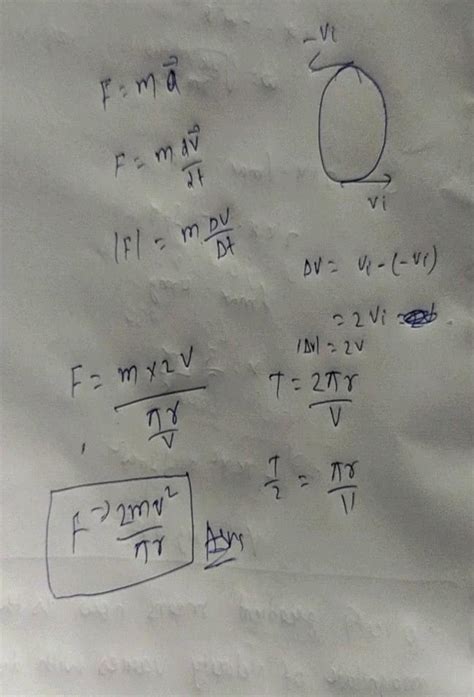 -Vi
F = m a⃗
F = m dv⃗/dt
Vi
|F| = m DV/Dt
DV = Vi - (-Vi)
= 2Vi
|DV| = 2V
F = m×2V / (πr/V)
T = 2πr/V
T/2 = πr/V
F => 2mv²/πr
Ans